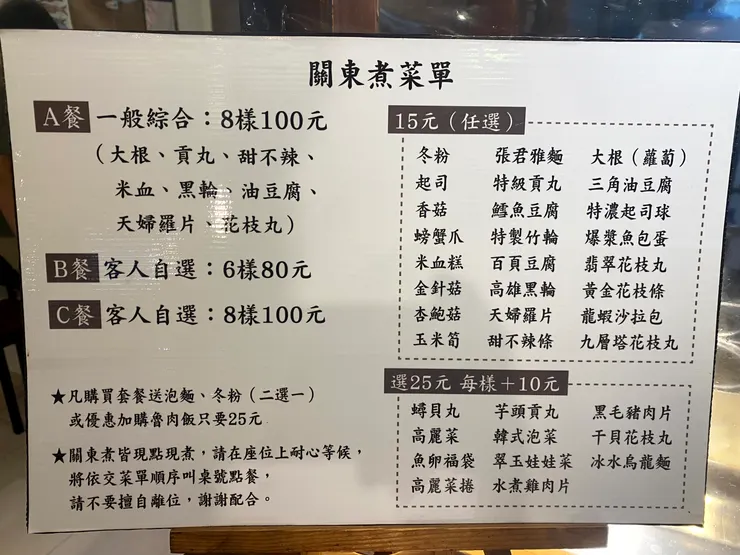 關東煮菜單
A餐 一般綜合：8樣100元
（大根、貢丸、甜不辣、
米血、黑輪、油豆腐、
天婦羅片、花枝丸）
B餐 客人自選：6樣80元
C餐 客人自選：8樣100元
★凡購買套餐送泡麵、冬粉（二選一）
或優惠加購魯肉飯只要25元
★關東煮皆現點現煮，請在座位上耐心等候，
將依交菜單順序叫桌號點餐，
請不要擅自離位，謝謝配合。
15元（任選）
冬粉 張君雅麵 大根（蘿蔔）
起司 特級貢丸 三角油豆腐
香菇 鱈魚豆腐 特濃起司球
螃蟹爪 特製竹輪 爆漿魚包蛋
米血糕 百頁豆腐 翡翠花枝丸
金針菇 高雄黑輪 黃金花枝條
杏鮑菇 天婦羅片 龍蝦沙拉包
玉米筍 甜不辣條 九層塔花枝丸
選25元 每樣＋10元
蟳貝丸 芋頭貢丸 黑毛豬肉片
高麗菜 韓式泡菜 干貝花枝丸
魚卵福袋 翠玉娃娃菜 冰水烏龍麵
高麗菜捲 水煮雞肉片